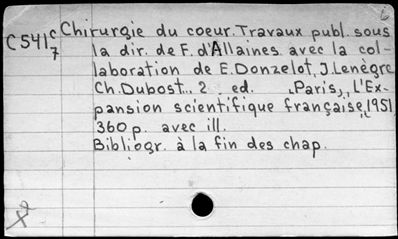 C541 c/7 Chirurgie du coeur. Travaux publ. sous
la dir. de F. d'Allaines avec la col-
laboration de E. Donzelot, J. Lenègre
Ch. Dubost.. 2 ed. "Paris," L'Ex-
pansion scientifique française, 1951
360 p. avec ill.
Bibliogr. à la fin des chap.